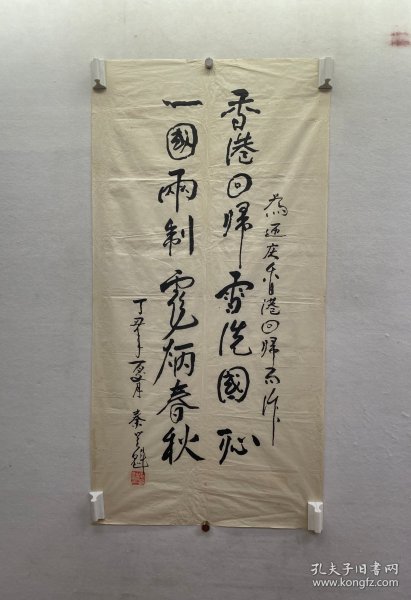 為迎庆香港回歸而作
香港回歸雪洗國恥
一國兩制彪炳春秋
丁丑年 月 秦
孔夫子旧书网
www.kongfz.com